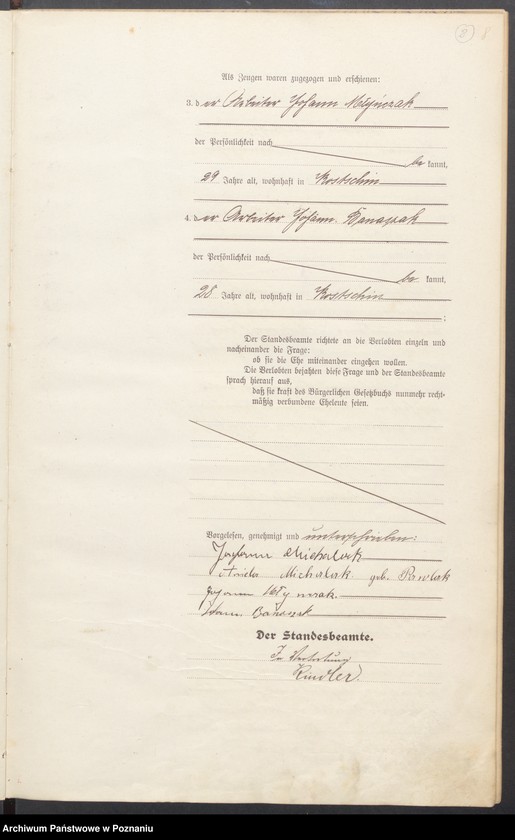 2 8
Als Zeugen waren zugezogen und erschienen:
3. der Arbeiter Johann Młyńczak
der Persönlichkeit nach
bekannt,
29 Jahre alt, wohnhaft in Kostschin
4. der Arbeiter Johann Banaszak
der Persönlichkeit nach
be kannt,
28 Jahre alt, wohnhaft in Kostschin
;
Der Standesbeamte richtete an die Verlobten einzeln und
nacheinander die Frage:
ob sie die Ehe miteinander eingehen wollen.
Die Verlobten bejahten diese Frage und der Standesbeamte
sprach hierauf aus,
daß sie kraft des Bürgerlichen Gesetzbuchs nunmehr recht-
mäßig verbundene Eheleute seien.
Vorgelesen, genehmigt und unterschrieben:
Johann Michalak
Michalak geb. Pawlak
Johann
Banaszak
Der Standesbeamte.
In Vertretung
Kindler
Archiwum Państwowe w Poznaniu